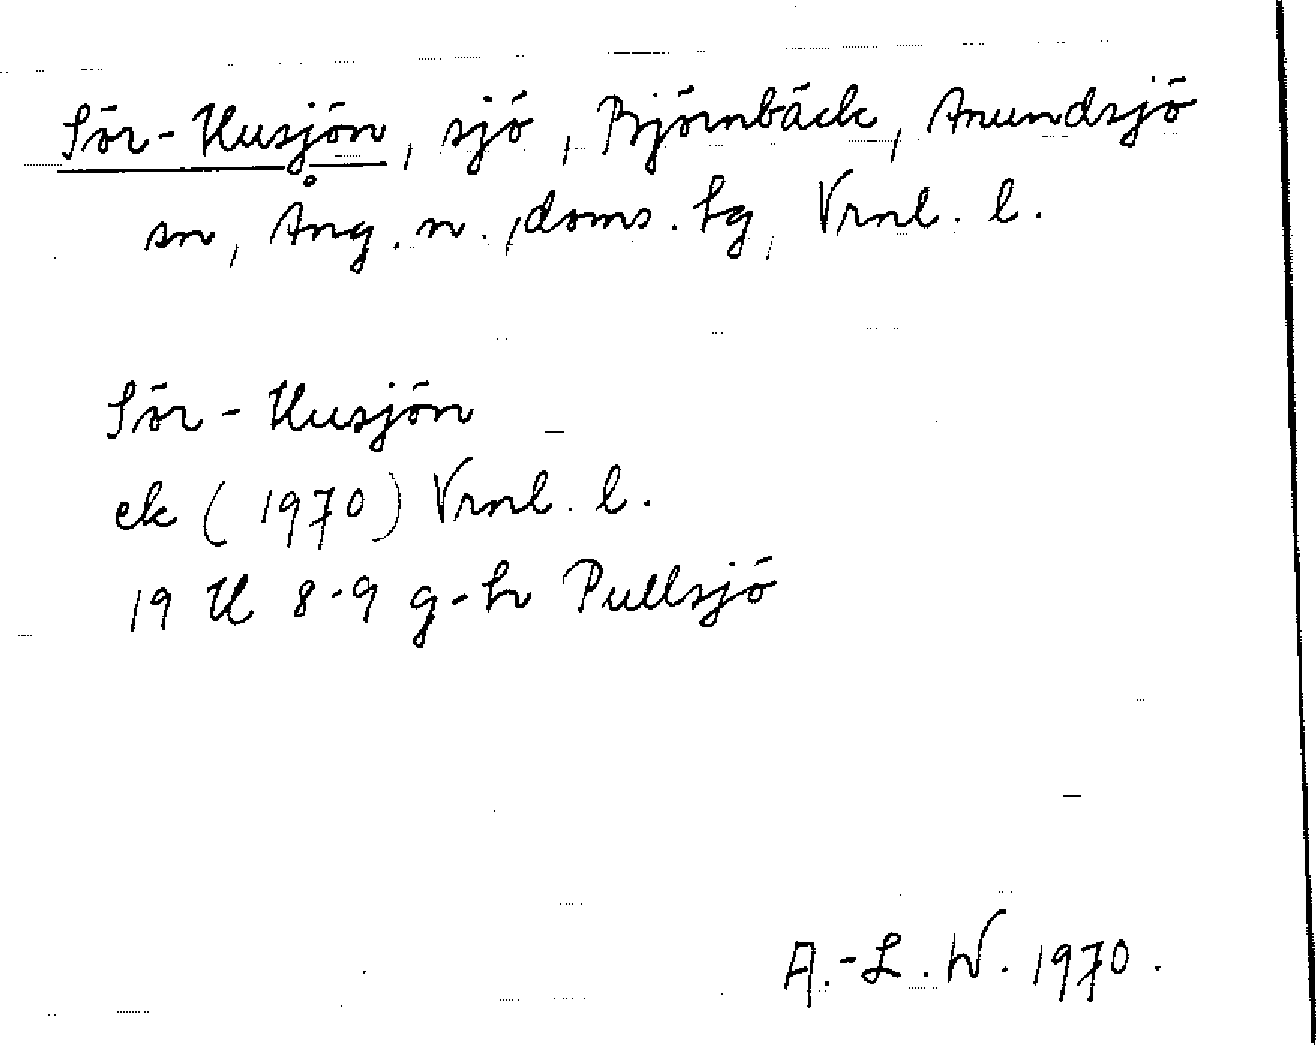 Sör-Husjön, sjö, Björnbäck, Anundsjö
sn, Ång. n., doms. tg, Vrnl. l.
Sör-Husjön
ek (1970) Vrnl. l.
19 H 8-9 g-h Pullsjö
A.-L. W. 1970.